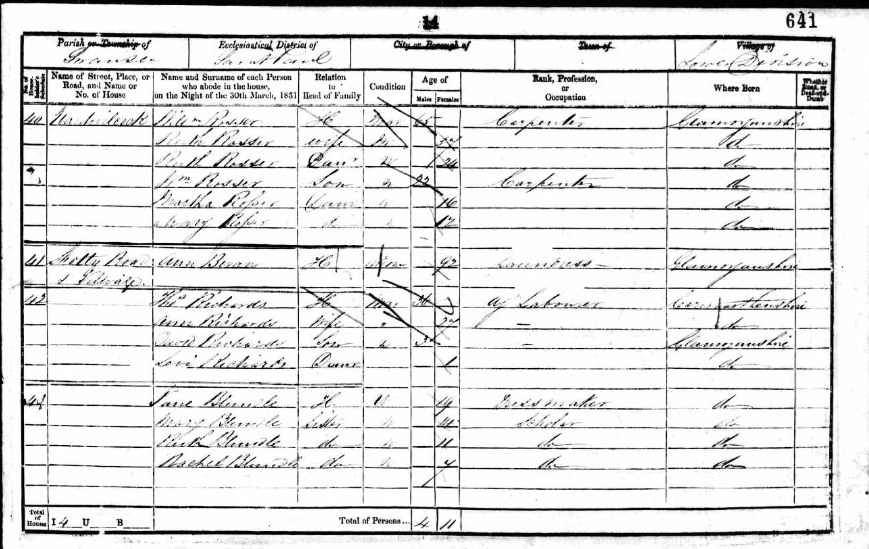 14
641
Parish or Township of Ecclesiastical District of City or Borough of Town of Village of
Swansea Saint Paul Lower Division
No. of House- holder's Schedule Name of Street, Place, or Road, and Name or No. of House Name and Surname of each Person who abode in the house, on the Night of the 30th March, 1851 Relation to Head of Family Condition Age of Males Females Rank, Profession, or Occupation Where Born Whether Blind, or Deaf-and-Dumb
40 Rosser H Mar 65 Carpenter Glamorganshire
Ruth Rosser Wife d
Ruth Rosser Daur U 24 do
Wm Rosser Son U 22 Carpenter do
Martha Rosser Daur U 16 do
Mary Rosser do U 12 do
41 Sketty Road Ann Bevan H 92 Laundress Glamorganshire
42 Thos Richards H Mar Ag Labourer Carmarthenshire
Richards Wife 27 – do
Richards Son U 3 – Glamorganshire
Levi Richards Daur 1 do
Jane Blundle H U 19 Dressmaker do
Mary Blundle Sister U Scholar do
Ruth Blundle do U 11 do do
Rachel Blundle do U 7 do do
Total of Houses I 4 U B Total of Persons ... 4 11